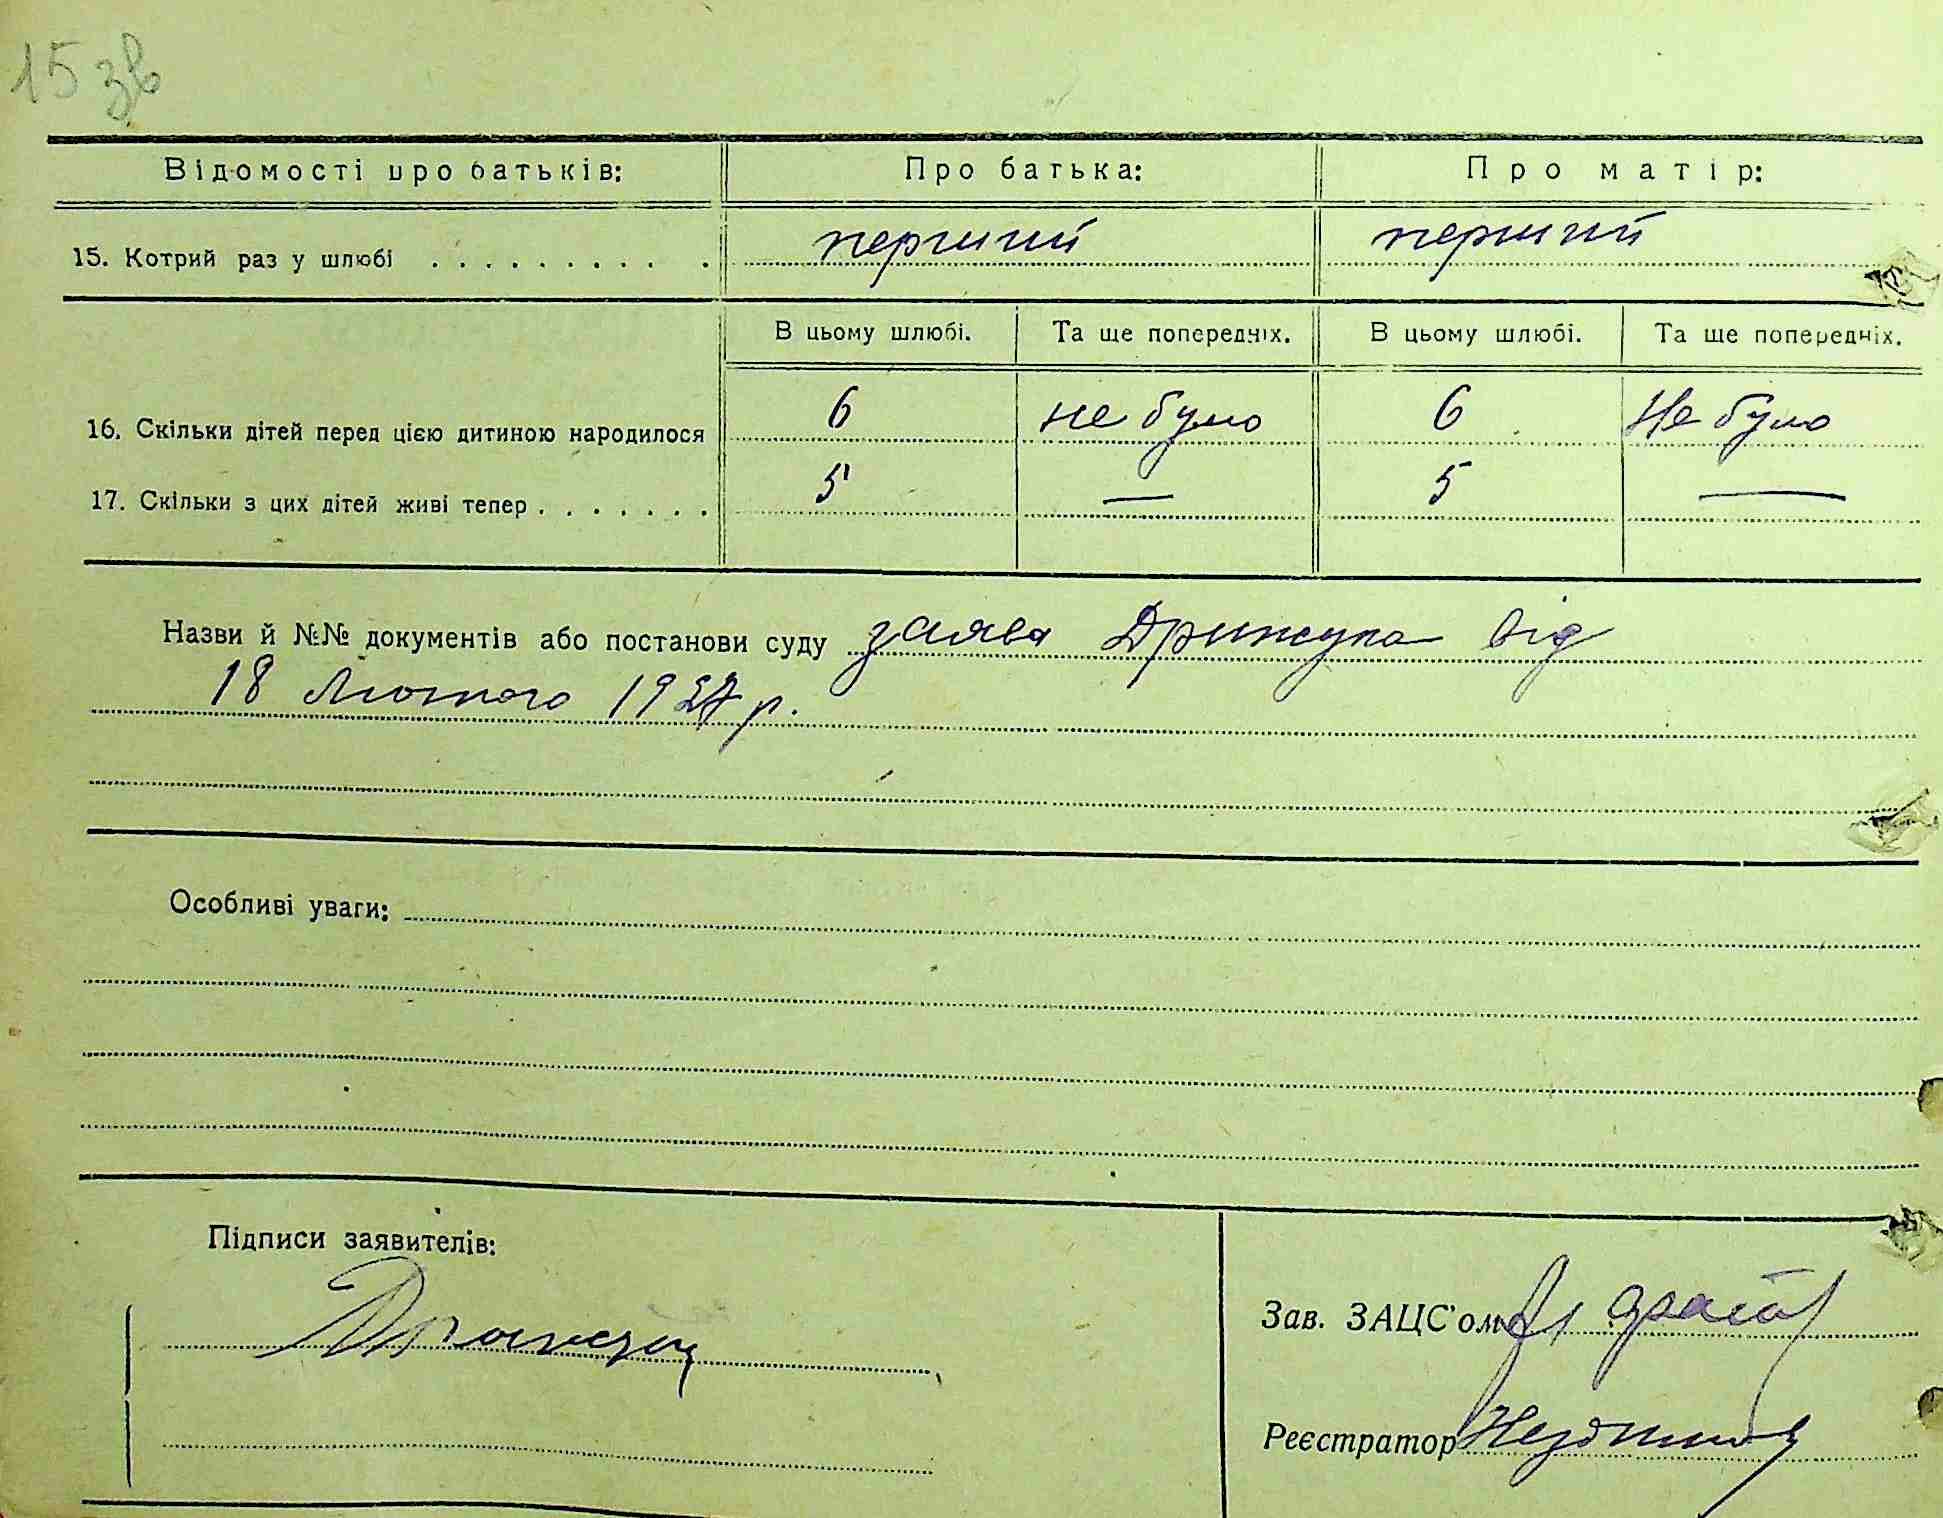 15 зв
Відомості про батьків: Про батька: Про матір:
15. Котрий раз у шлюбі . . . . . . . . . . перший перший
В цьому шлюбі. Та ще попередніх. В цьому шлюбі. Та ще попередніх.
16. Скільки дітей перед цією дитиною народилося 6 не було 6 не було
17. Скільки з цих дітей живі тепер . . . . . . . 5 — 5 —
Назви й №№ документів або постанови суду заява від
18 Лютого 1937 р.
Особливі уваги:
Підписи заявителів:
Зав. ЗАЦС'ом
Реєстратор